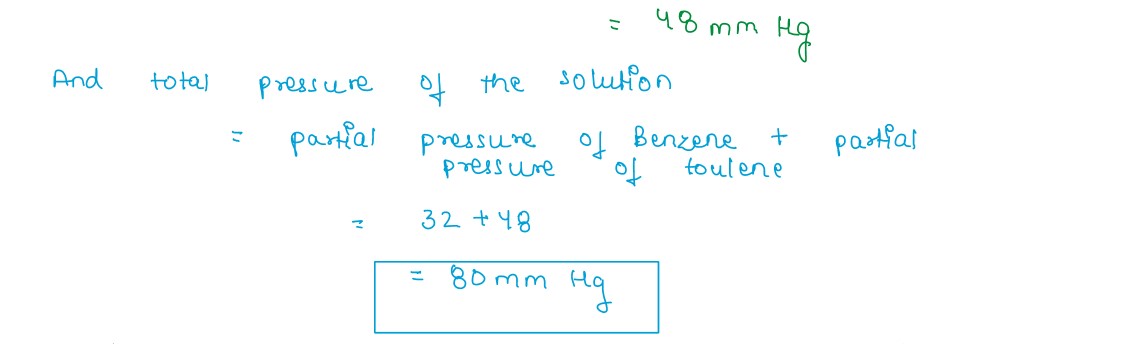 = 48 mm Hg
And total pressure of the solution
= partial pressure of Benzene + partial
pressure of toulene
= 32 + 48
= 80 mm Hg